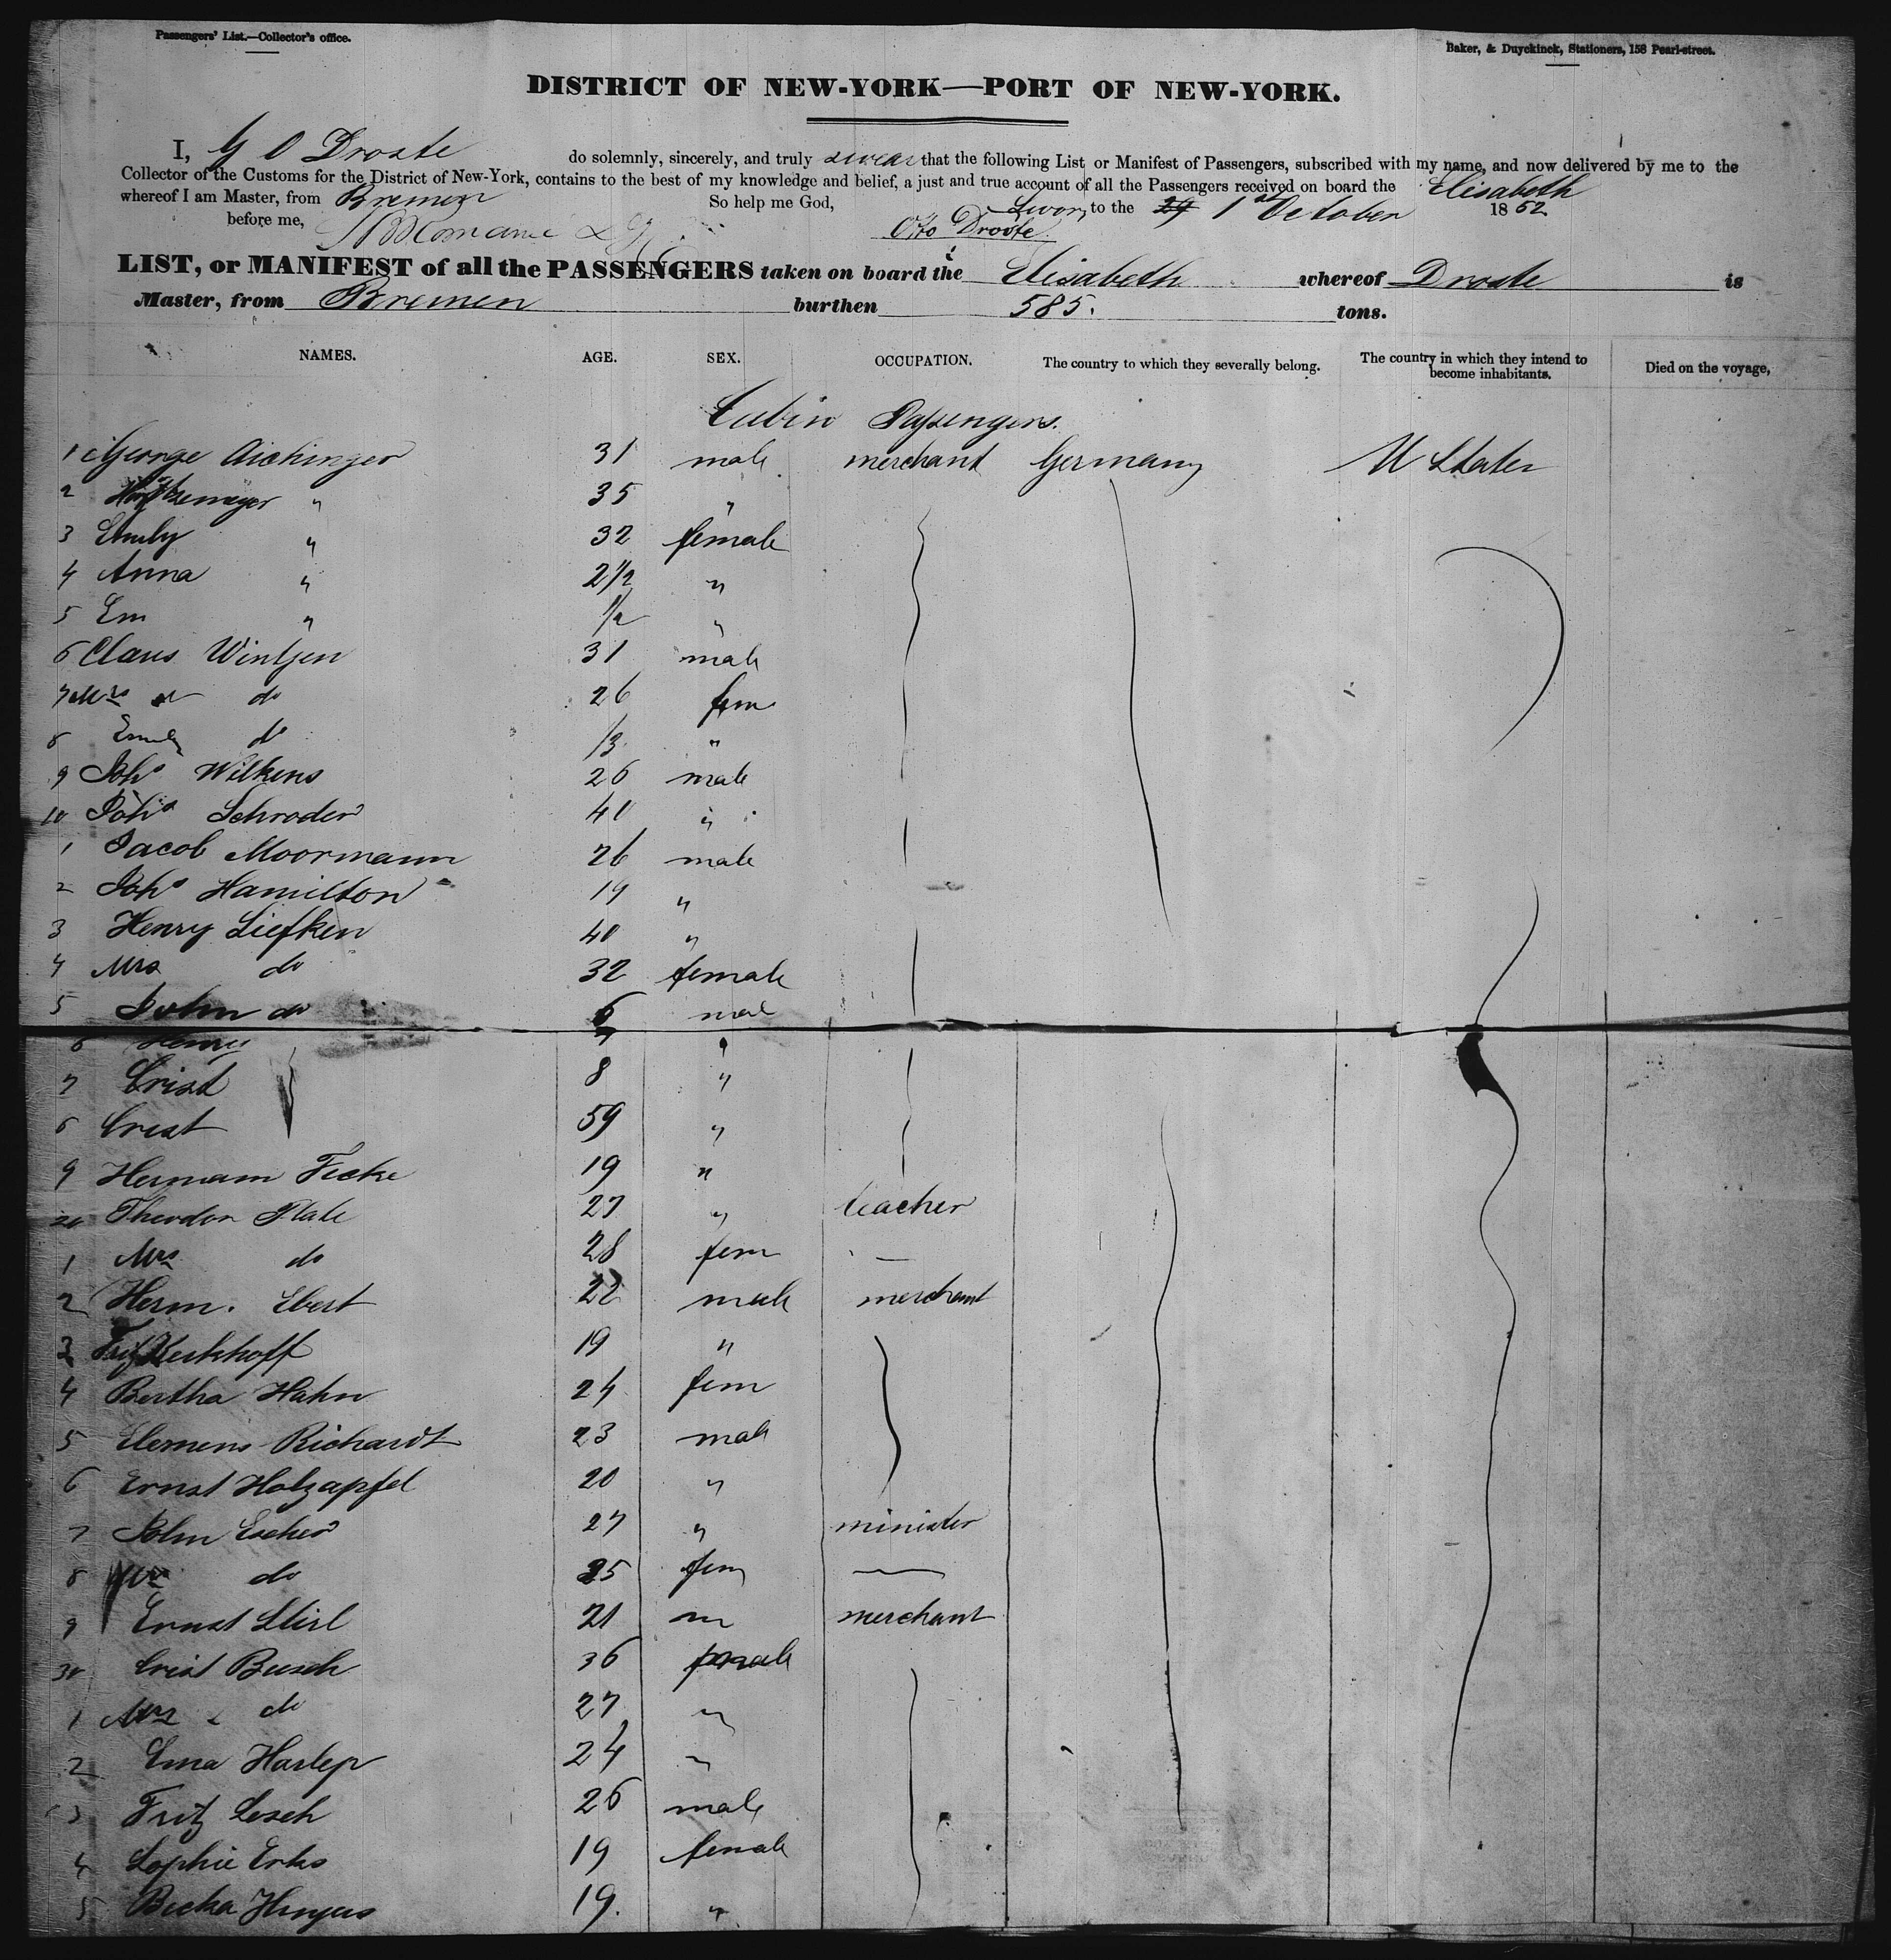 Passengers' List.—Collector's office.
Baker, & Duyckinck, Stationers, 158 Pearl-street.
DISTRICT OF NEW-YORK—PORT OF NEW-YORK.
I, G O Droste do solemnly, sincerely, and truly swear that the following List or Manifest of Passengers, subscribed with my name, and now delivered by me to the
Collector of the Customs for the District of New-York, contains to the best of my knowledge and belief, a just and true account of all the Passengers received on board the Elisabeth
whereof I am Master, from Bremen So help me God, Sworn to the 29 1st October 1852
before me, Otto Droste.
LIST, or MANIFEST of all the PASSENGERS taken on board the Elisabeth whereof Droste is
Master, from Bremen burthen 585. tons.
NAMES. AGE. SEX. OCCUPATION. The country to which they severally belong. The country in which they intend to become inhabitants. Died on the voyage,
Cabin Passengers.
1 George Aichinger 31 male merchant Germany U States
2 " 35 "
3 Emily " 32 female
4 Anna " 2 1/2 "
5 Em " 1/2 "
6 Claus Wintjen 31 male
7 Mrs do 26 fem
8 Emily do "
9 Johs Wilkens 26 male
10 Johs Schroder 40 "
1 Jacob Moormann 26 male
2 Johs Hamilton 19 "
3 Henry Liefken 40 "
4 Mrs do 32 female
5 John do 6 male
6 Henry "
7 Crist 8 "
8 Crist 59 "
9 Hermann Fecke 19 "
20 Theodor Plate 27 " teacher
1 Mrs do 28 fem —
2 Herm. Ebert 22 male merchant
3 Fritz Kerkhoff 19 "
4 Bertha Hahn 24 fem
5 Clemens Richardt 23 male
6 Ernst Holzapfel 20 "
7 John Escher 27 " minister
8 Mrs do 25 fem —
9 Ernst Stirl 21 m merchant
30 Crist Busch 36 male
1 Mrs do 27 "
2 Ema 24 "
3 Fritz Lesch 26 male
4 Sophie Erks 19 female
5 Becka 19. "